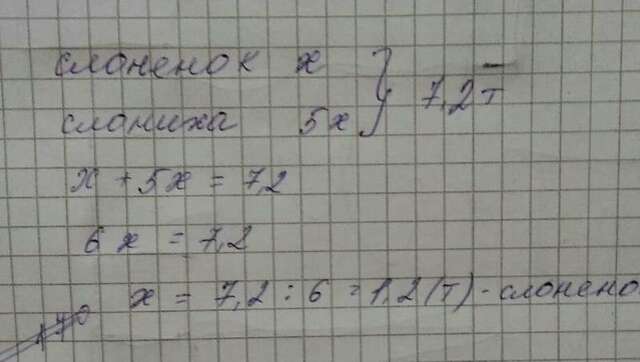 слоненок х
слониха 5х } 7,2 т
х + 5х = 7,2
6 х = 7,2
х = 7,2 : 6 = 1,2 (т) - слонено